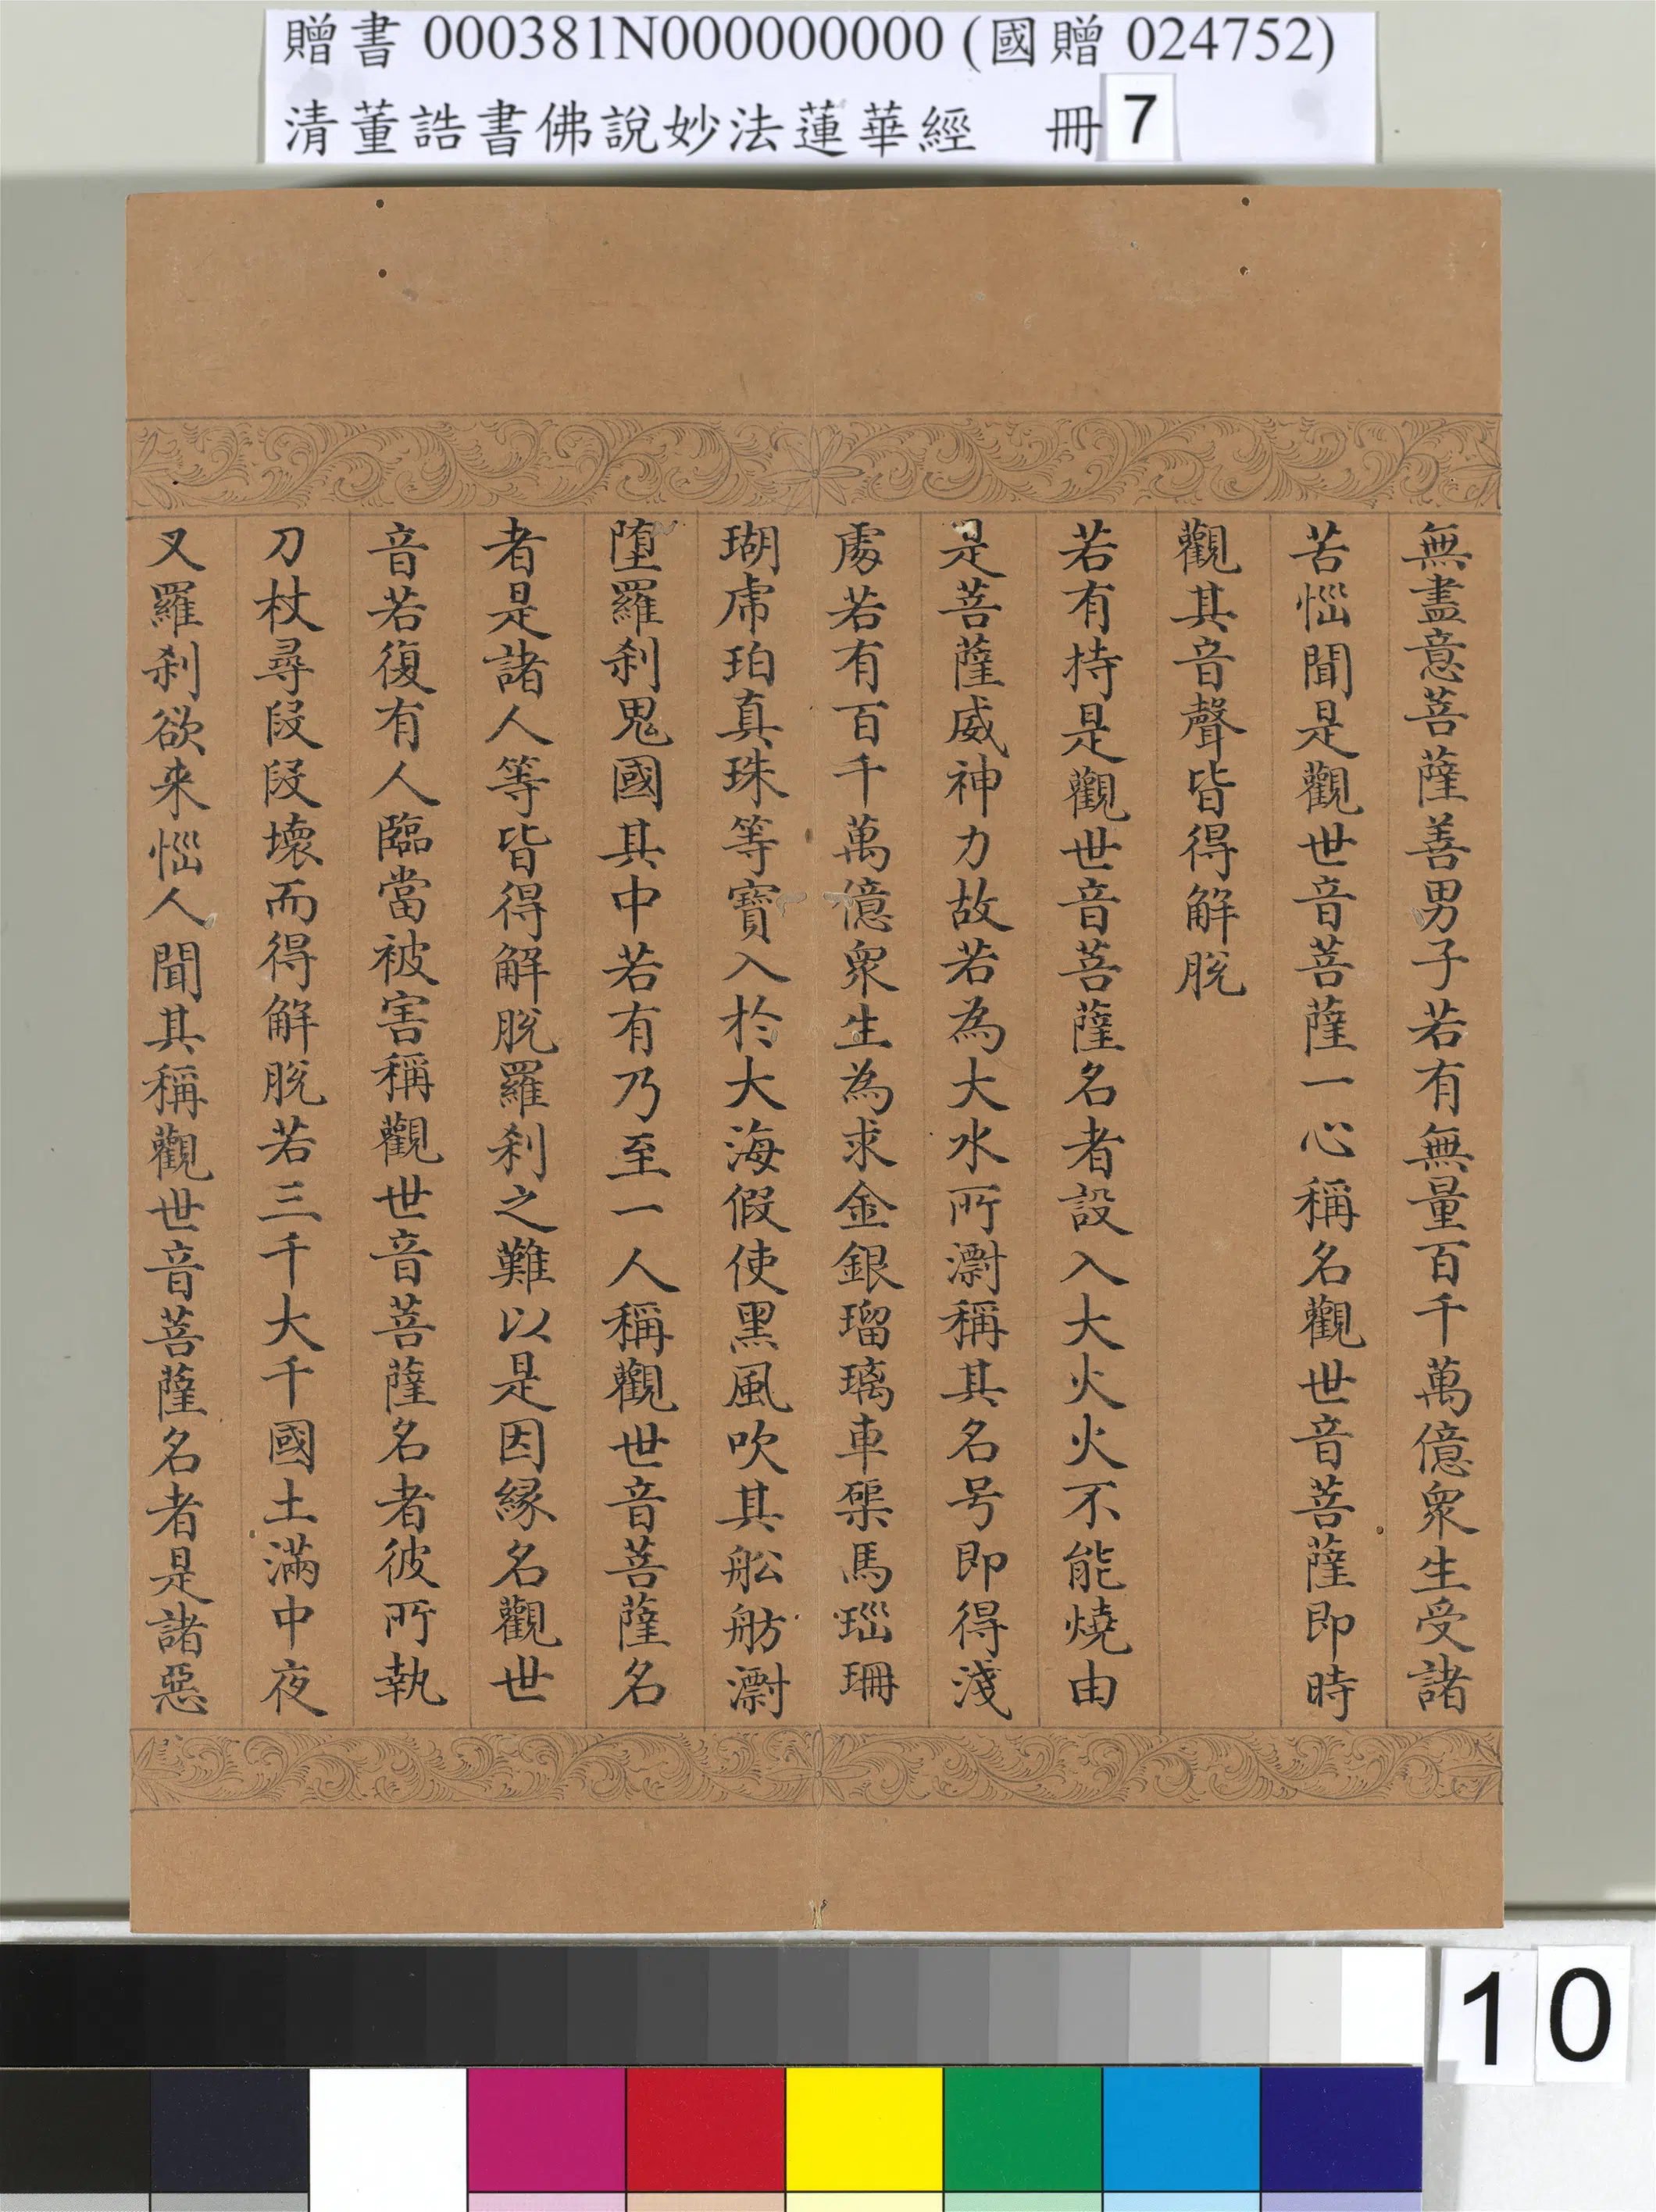 贈書 000381N000000000 (國贈 024752)
清董誥書佛說妙法蓮華經 冊 7
無盡意菩薩善男子若有無量百千萬億衆生受諸
苦惱聞是觀世音菩薩一心稱名觀世音菩薩即時
觀其音聲皆得解脫
若有持是觀世音菩薩名者設入大火火不能燒由
是菩薩威神力故若為大水所漂稱其名号即得淺
處若有百千萬億衆生為求金銀瑠璃車磲馬瑙珊
瑚虎珀真珠等寶入於大海假使黑風吹其舩舫漂
墮羅剎鬼國其中若有乃至一人稱觀世音菩薩名
者是諸人等皆得解脫羅剎之難以是因緣名觀世
音若復有人臨當被害稱觀世音菩薩名者彼所執
刀杖尋段段壞而得解脫若三千大千國土滿中夜
叉羅剎欲来惱人聞其稱觀世音菩薩名者是諸惡
10